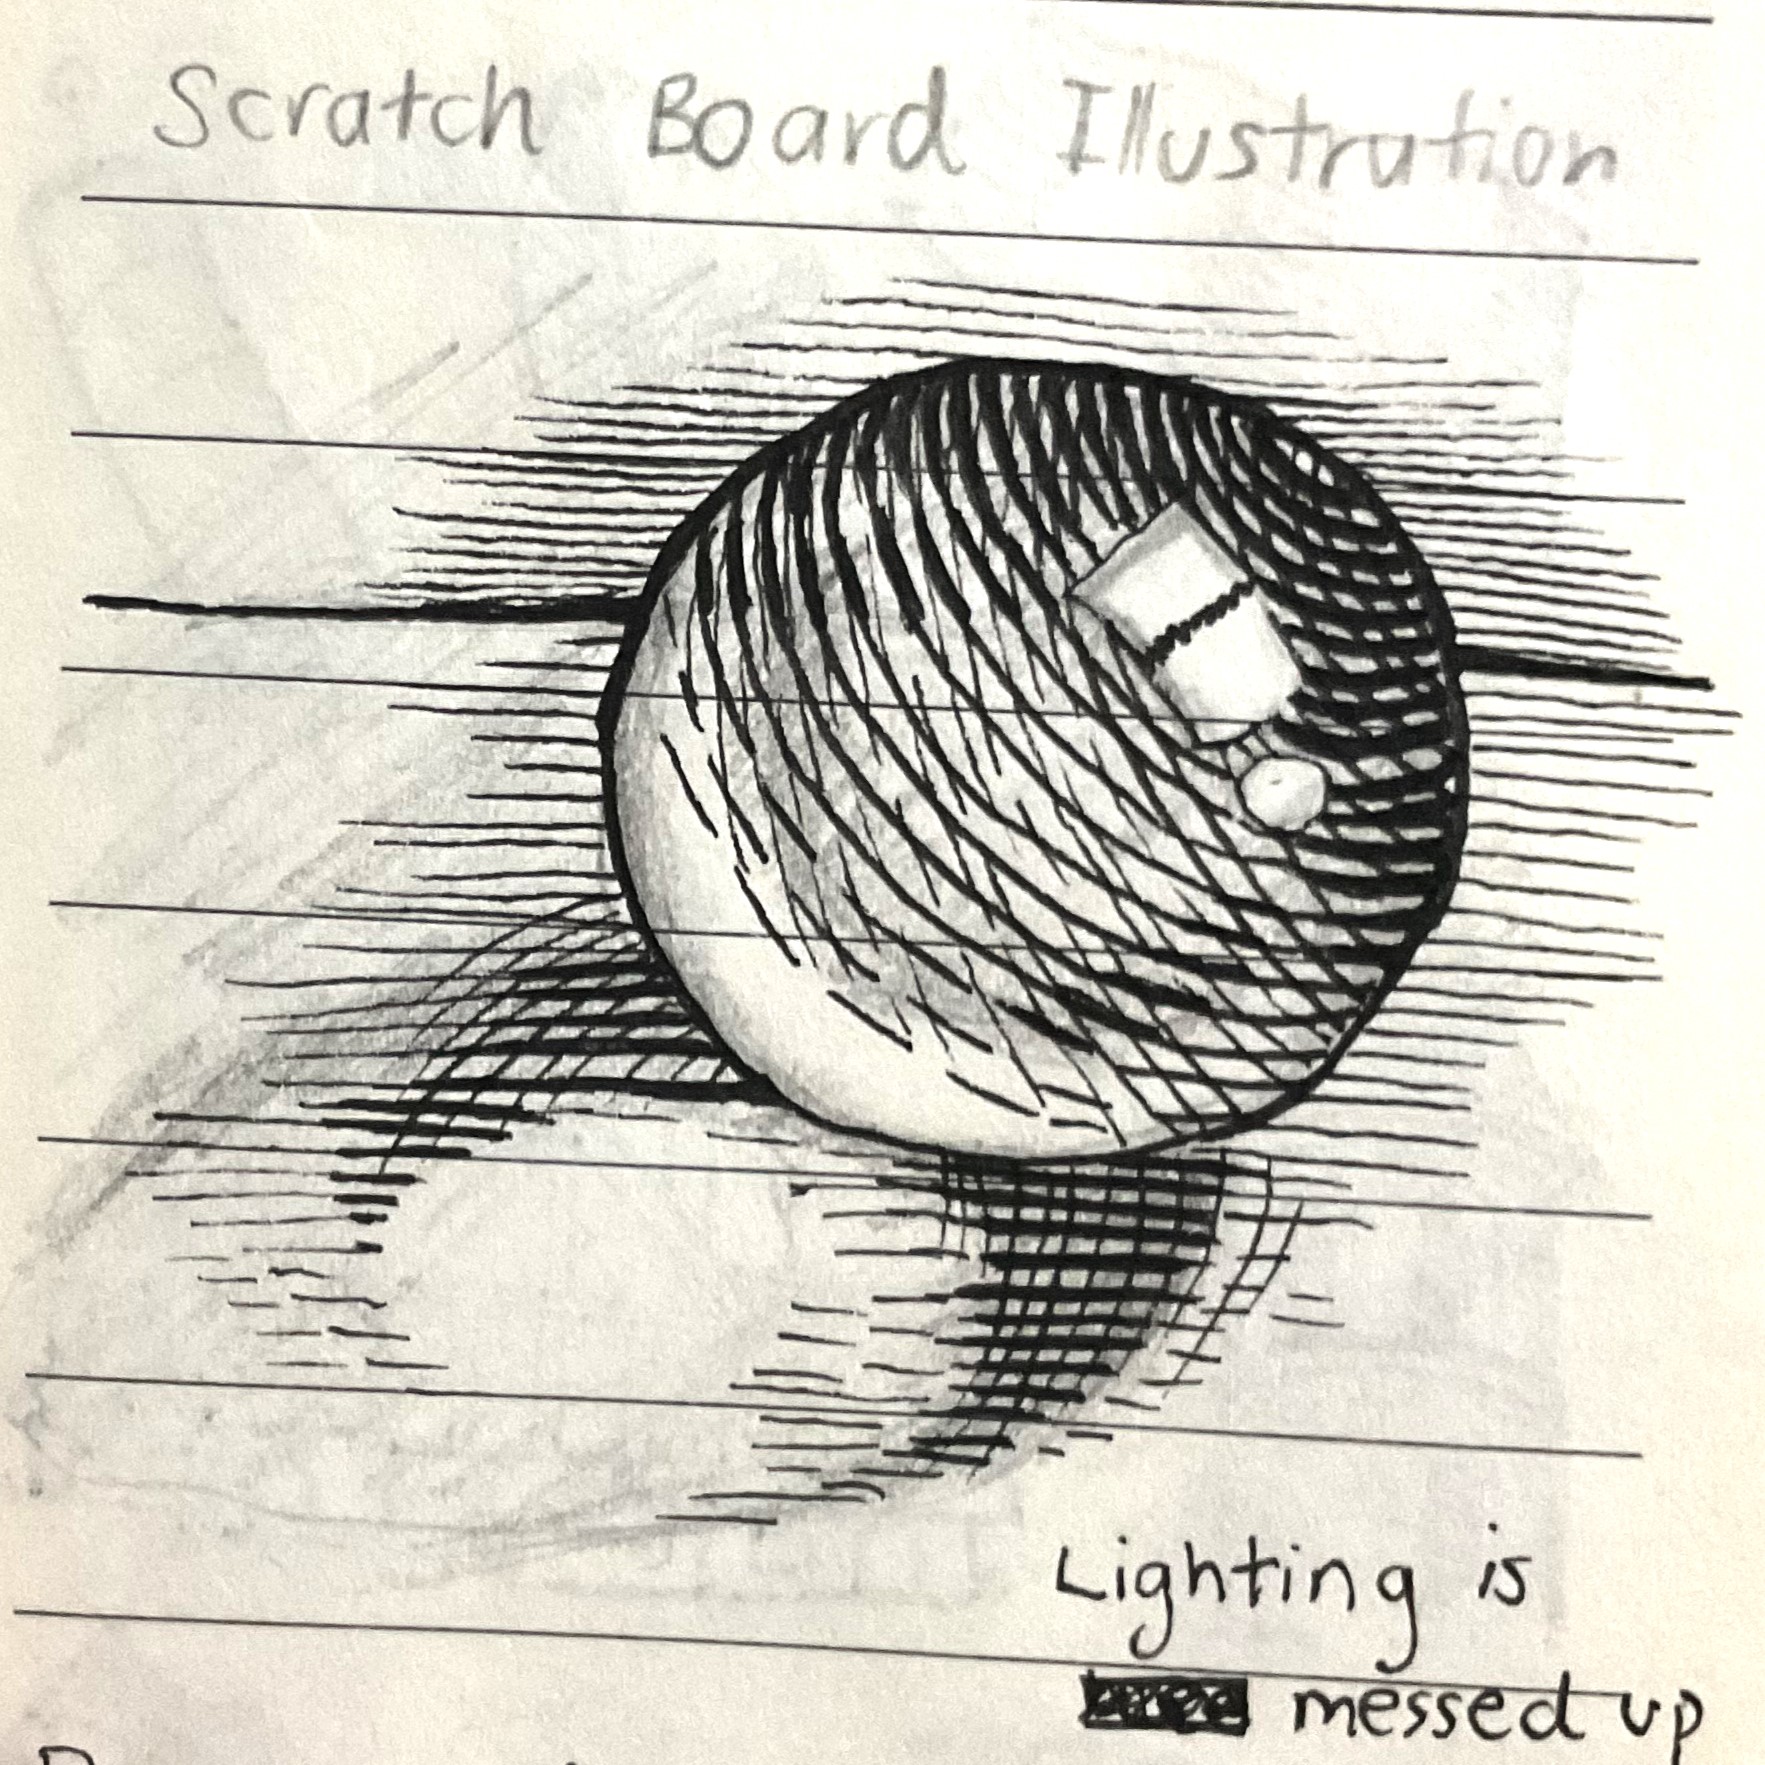 Scratch Board Illustration
Lighting is
messed up